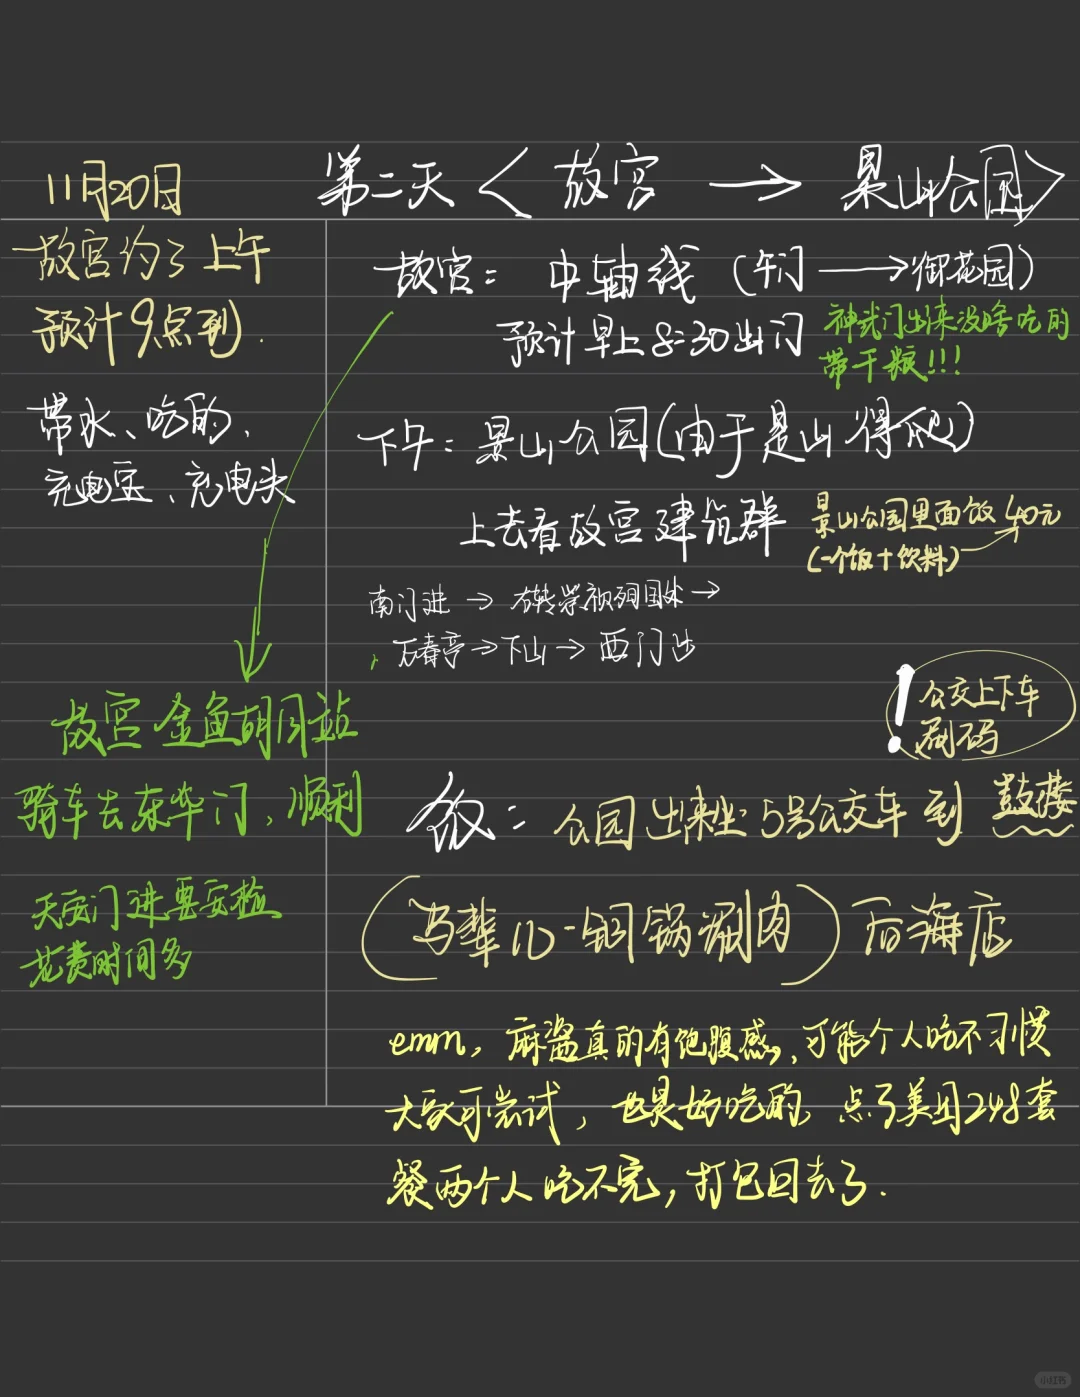 11月20日
第二天<故宫→景山公园>
故宫约了上午
预计9点到).
带水、吃的,
充电宝、充电头
故宫: 中轴线(午门→御花园)
预计早上8:30出门
神武门出来没啥吃的
带干粮!!!
下午: 景山公园(由于是山得爬)
上去看故宫建筑群
景山公园里面饭40元
(一个饭+饮料)
南门进→右转崇祯殉国处→
万春亭→下山→西门出
故宫金鱼胡同站
骑车去东华门,顺利
天安门进要安检
花费时间多
!公交上下车
刷码
饭: 公园出来坐5号公交车到鼓楼
(马辈儿-铜锅涮肉)后海店
emm, 麻酱真的有饱腹感, 可能个人吃不习惯
大家可尝试, 也是好吃的, 点了美团248套
餐两个人吃不完, 打包回去了.
小红书